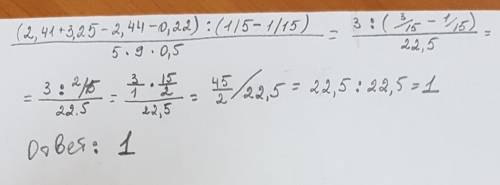 (2,41+3,25-2,44-0,22) : (1/5-1/15) / 5·9·0,5 = 3 : (3/15 - 1/15) / 22,5 =
= 3 : 2/15 / 22.5 = 3/1 · 15/2 / 22,5 = 45/2 / 22,5 = 22,5 : 22,5 = 1
Ответ: 1